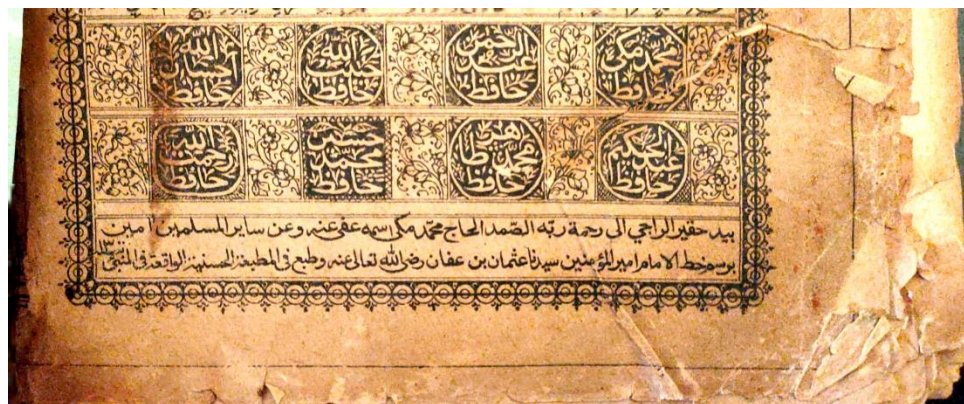 حافظ محمد مكي
حافظ عبد الرحمن
حافظ حبيب الله
حافظ احسان الله
حافظ عبد الحكيم
حافظ محمد طاهر
حافظ محمد حسين
حافظ رحمت الله
بيد حقير الراجي الى رحمة ربه الصمد الحاج محمد مكي اسمه عفى عنه وعن ساير المسلمين آمين
برسم خط الامام امير المؤمنين سيدنا عثمان بن عفان رضى الله تعالى عنه وطبع فى المطبعة الحسنية الواقعة فى